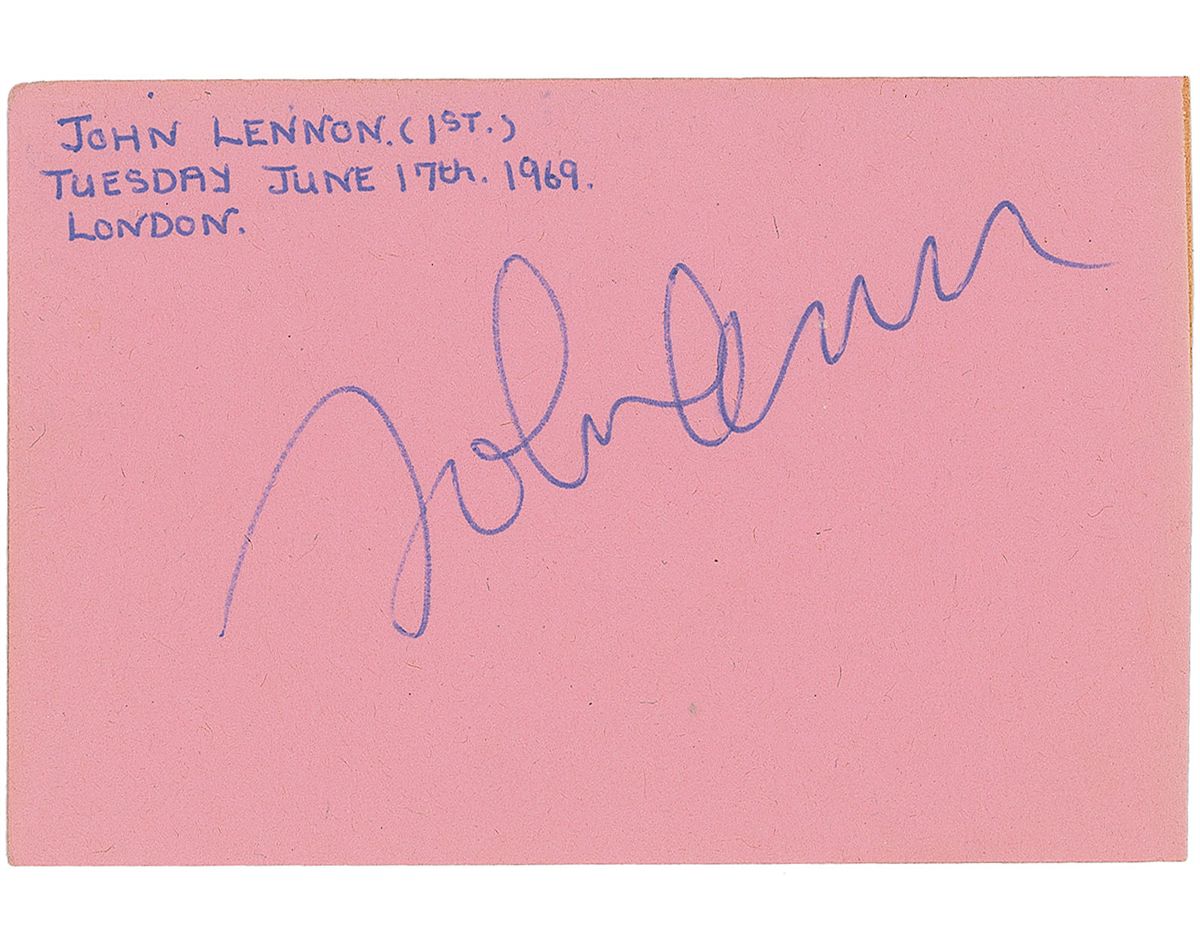 JOHN LENNON. (1ST.)
TUESDAY JUNE 17th. 1969.
LONDON.
John Lennon